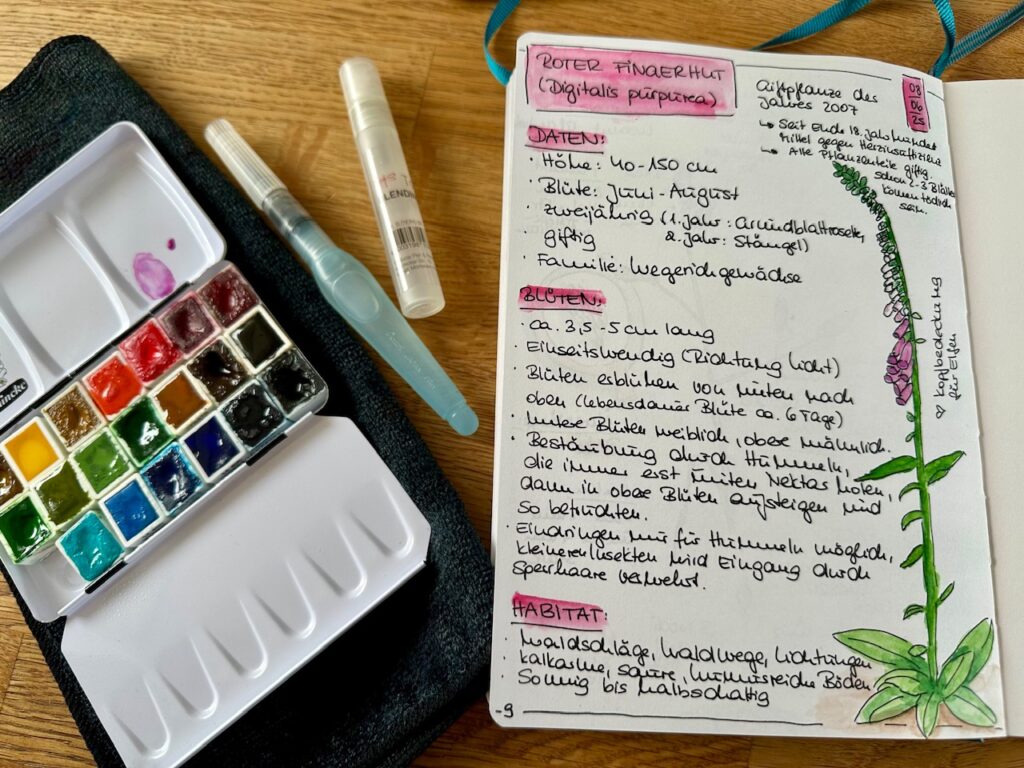 ROTER FINGERHUT
(Digitalis purpurea)
Giftpflanze des
Jahres 2007
↳ Seit Ende 18. Jahrhundert
Mittel gegen Herzinsuffizienz
↳ Alle Pflanzenteile giftig,
schon 2-3 Blätter
können tödlich
sein.
08
06
25
DATEN:
· Höhe: 40-150 cm
· Blüte: Juni-August
· zweijährig (1. Jahr: Grundblattrosette,
2. Jahr: Stängel)
· giftig
· Familie: Wegerichgewächse
BLÜTEN:
· ca. 3,5-5cm lang
· Einseitswendig (Richtung Licht)
· Blüten erblühen von unten nach
oben (Lebensdauer Blüte ca. 6 Tage)
· Untere Blüten weiblich, obere männlich.
· Bestäubung durch Hummeln,
die immer erst unten Nektar holen,
dann in obere Blüten aufsteigen und
so befruchten.
· Eindringen nur für Hummeln möglich,
kleineren Insekten wird Eingang durch
Sperrhaare verwehrt.
♡ Kopfbedeckung
für Elfen
HABITAT:
· Waldschläge, Waldwege, Lichtungen
· kalkarme, saure, humusreiche Böden
· Sonnig bis halbschattig
-9